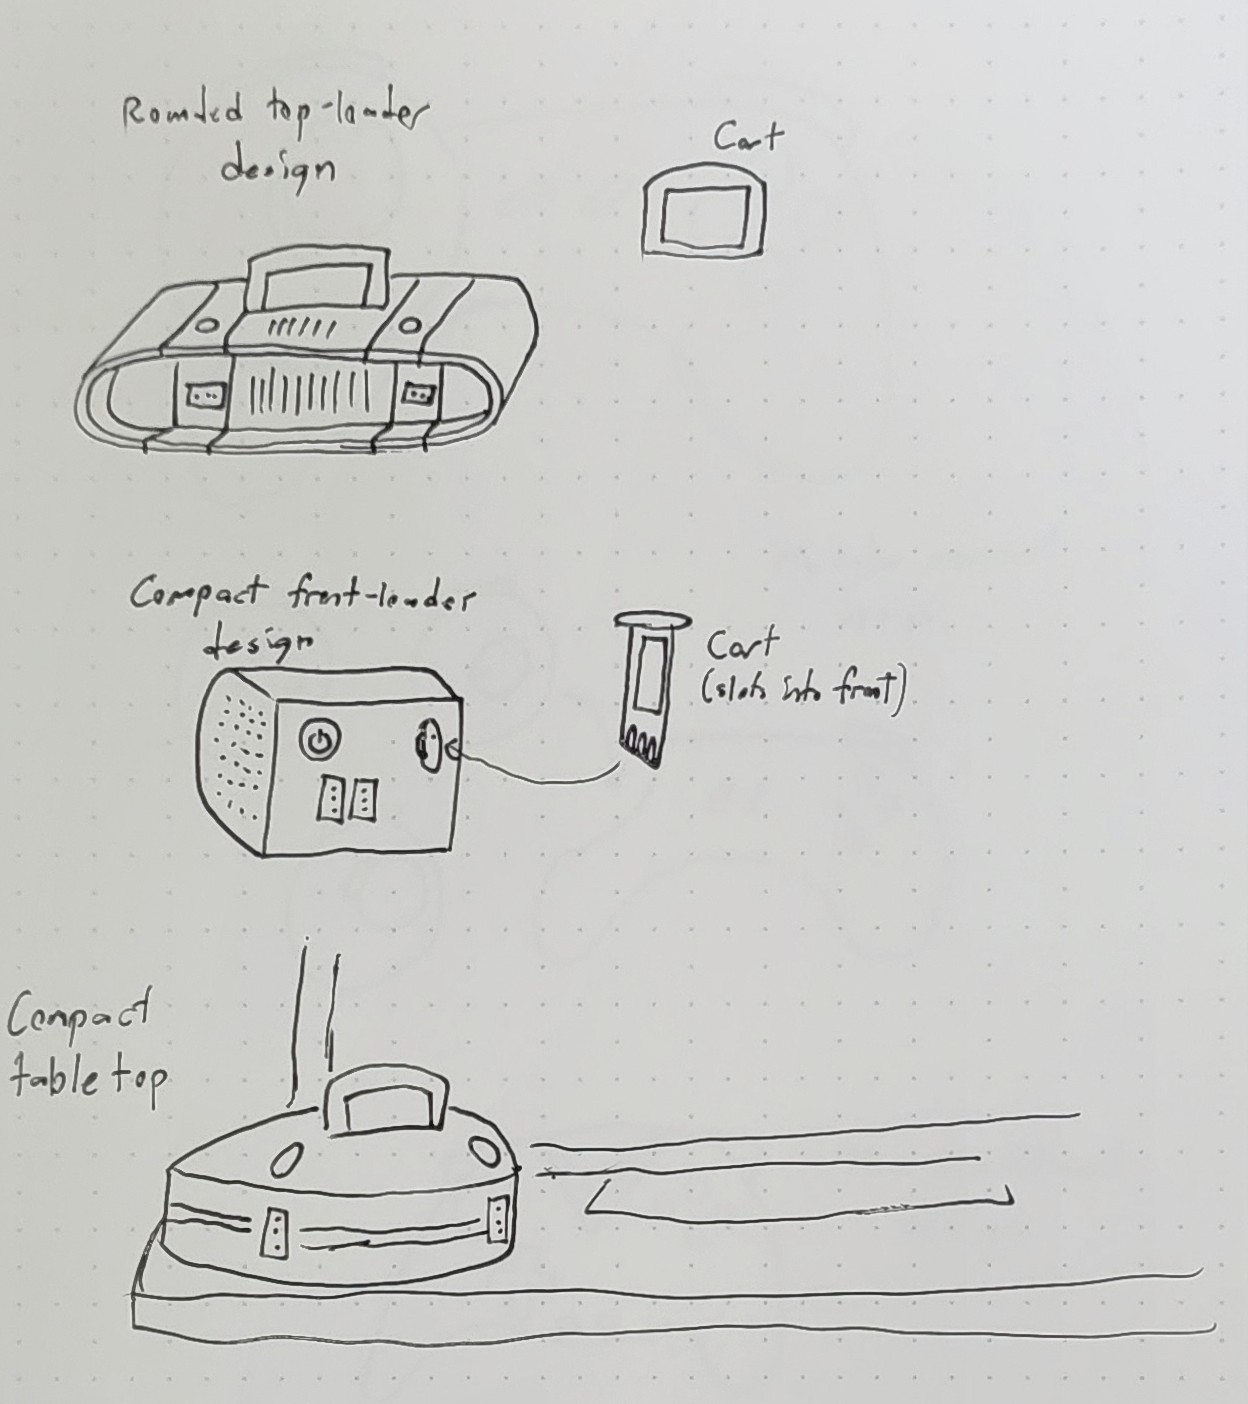 Rounded top-loader
design
Cart
Compact front-loader
design
Cart
(slots into front)
Compact
table top